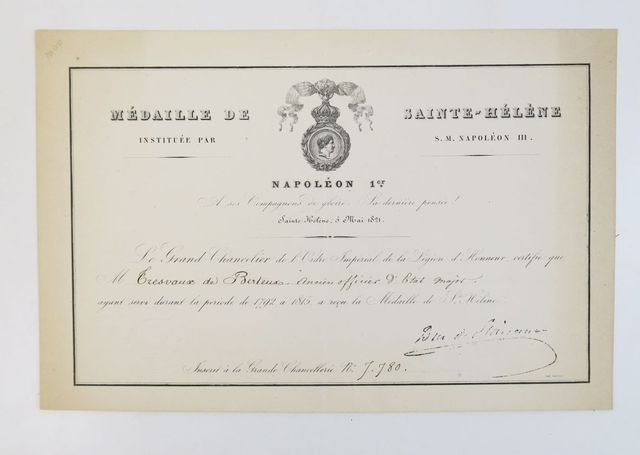 MÉDAILLE DE SAINTE-HÉLÈNE
INSTITUÉE PAR S. M. NAPOLÉON III.
NAPOLÉON 1er
A ses Compagnons de gloire. Sa dernière pensée!
Sainte-Hélène, 5 Mai 1821.
Le Grand Chancelier de l'Ordre Impérial de la Légion d'Honneur, certifie que
M Tresvaux de Berteux - ancien officier d'Etat major.
ayant servi durant la période de 1792 à 1815, a reçu la Médaille de Ste Hélène.
Inscrit à la Grande Chancellerie No. 7.780.